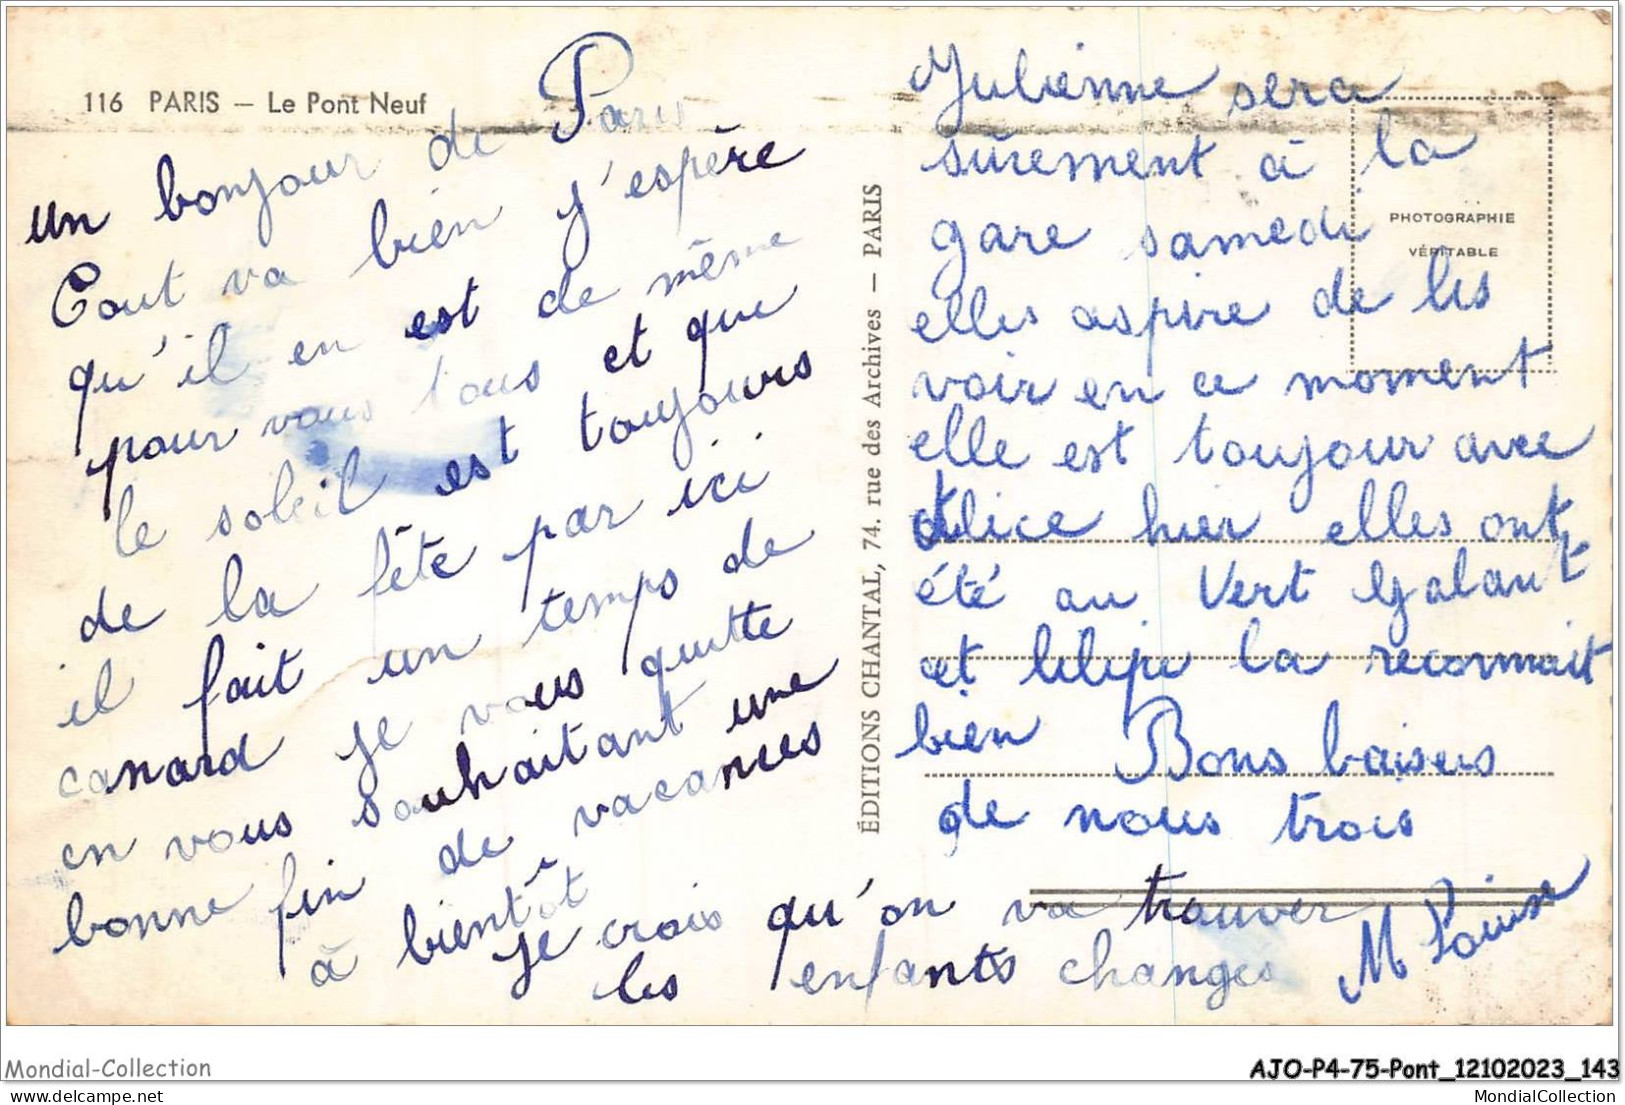 116 PARIS — Le Pont Neuf
un bonjour de Paris
Tout va bien j'espère
qu'il en est de même
pour vous tous et que
le soleil est toujours
de la fête par ici
il fait un temps de
canard je vous quitte
en vous souhaitant une
bonne fin de vacances
à bientôt
je crois qu'on va trouver
les enfants changes
ÉDITIONS CHANTAL, 74. rue des Archives — PARIS
Julienne sera
sûrement à la
gare samedi
elles aspire de les
voir en ce moment
elle est toujour avec
Alice hier elles ont
été au Vert Galant
et la reconnait
bien Bons baisers
de nous trois
M Louise
PHOTOGRAPHIE
VÉRITABLE
Mondial-Collection
AJO-P4-75-Pont_12102023_143
MondialCollection
MondialCollection.com